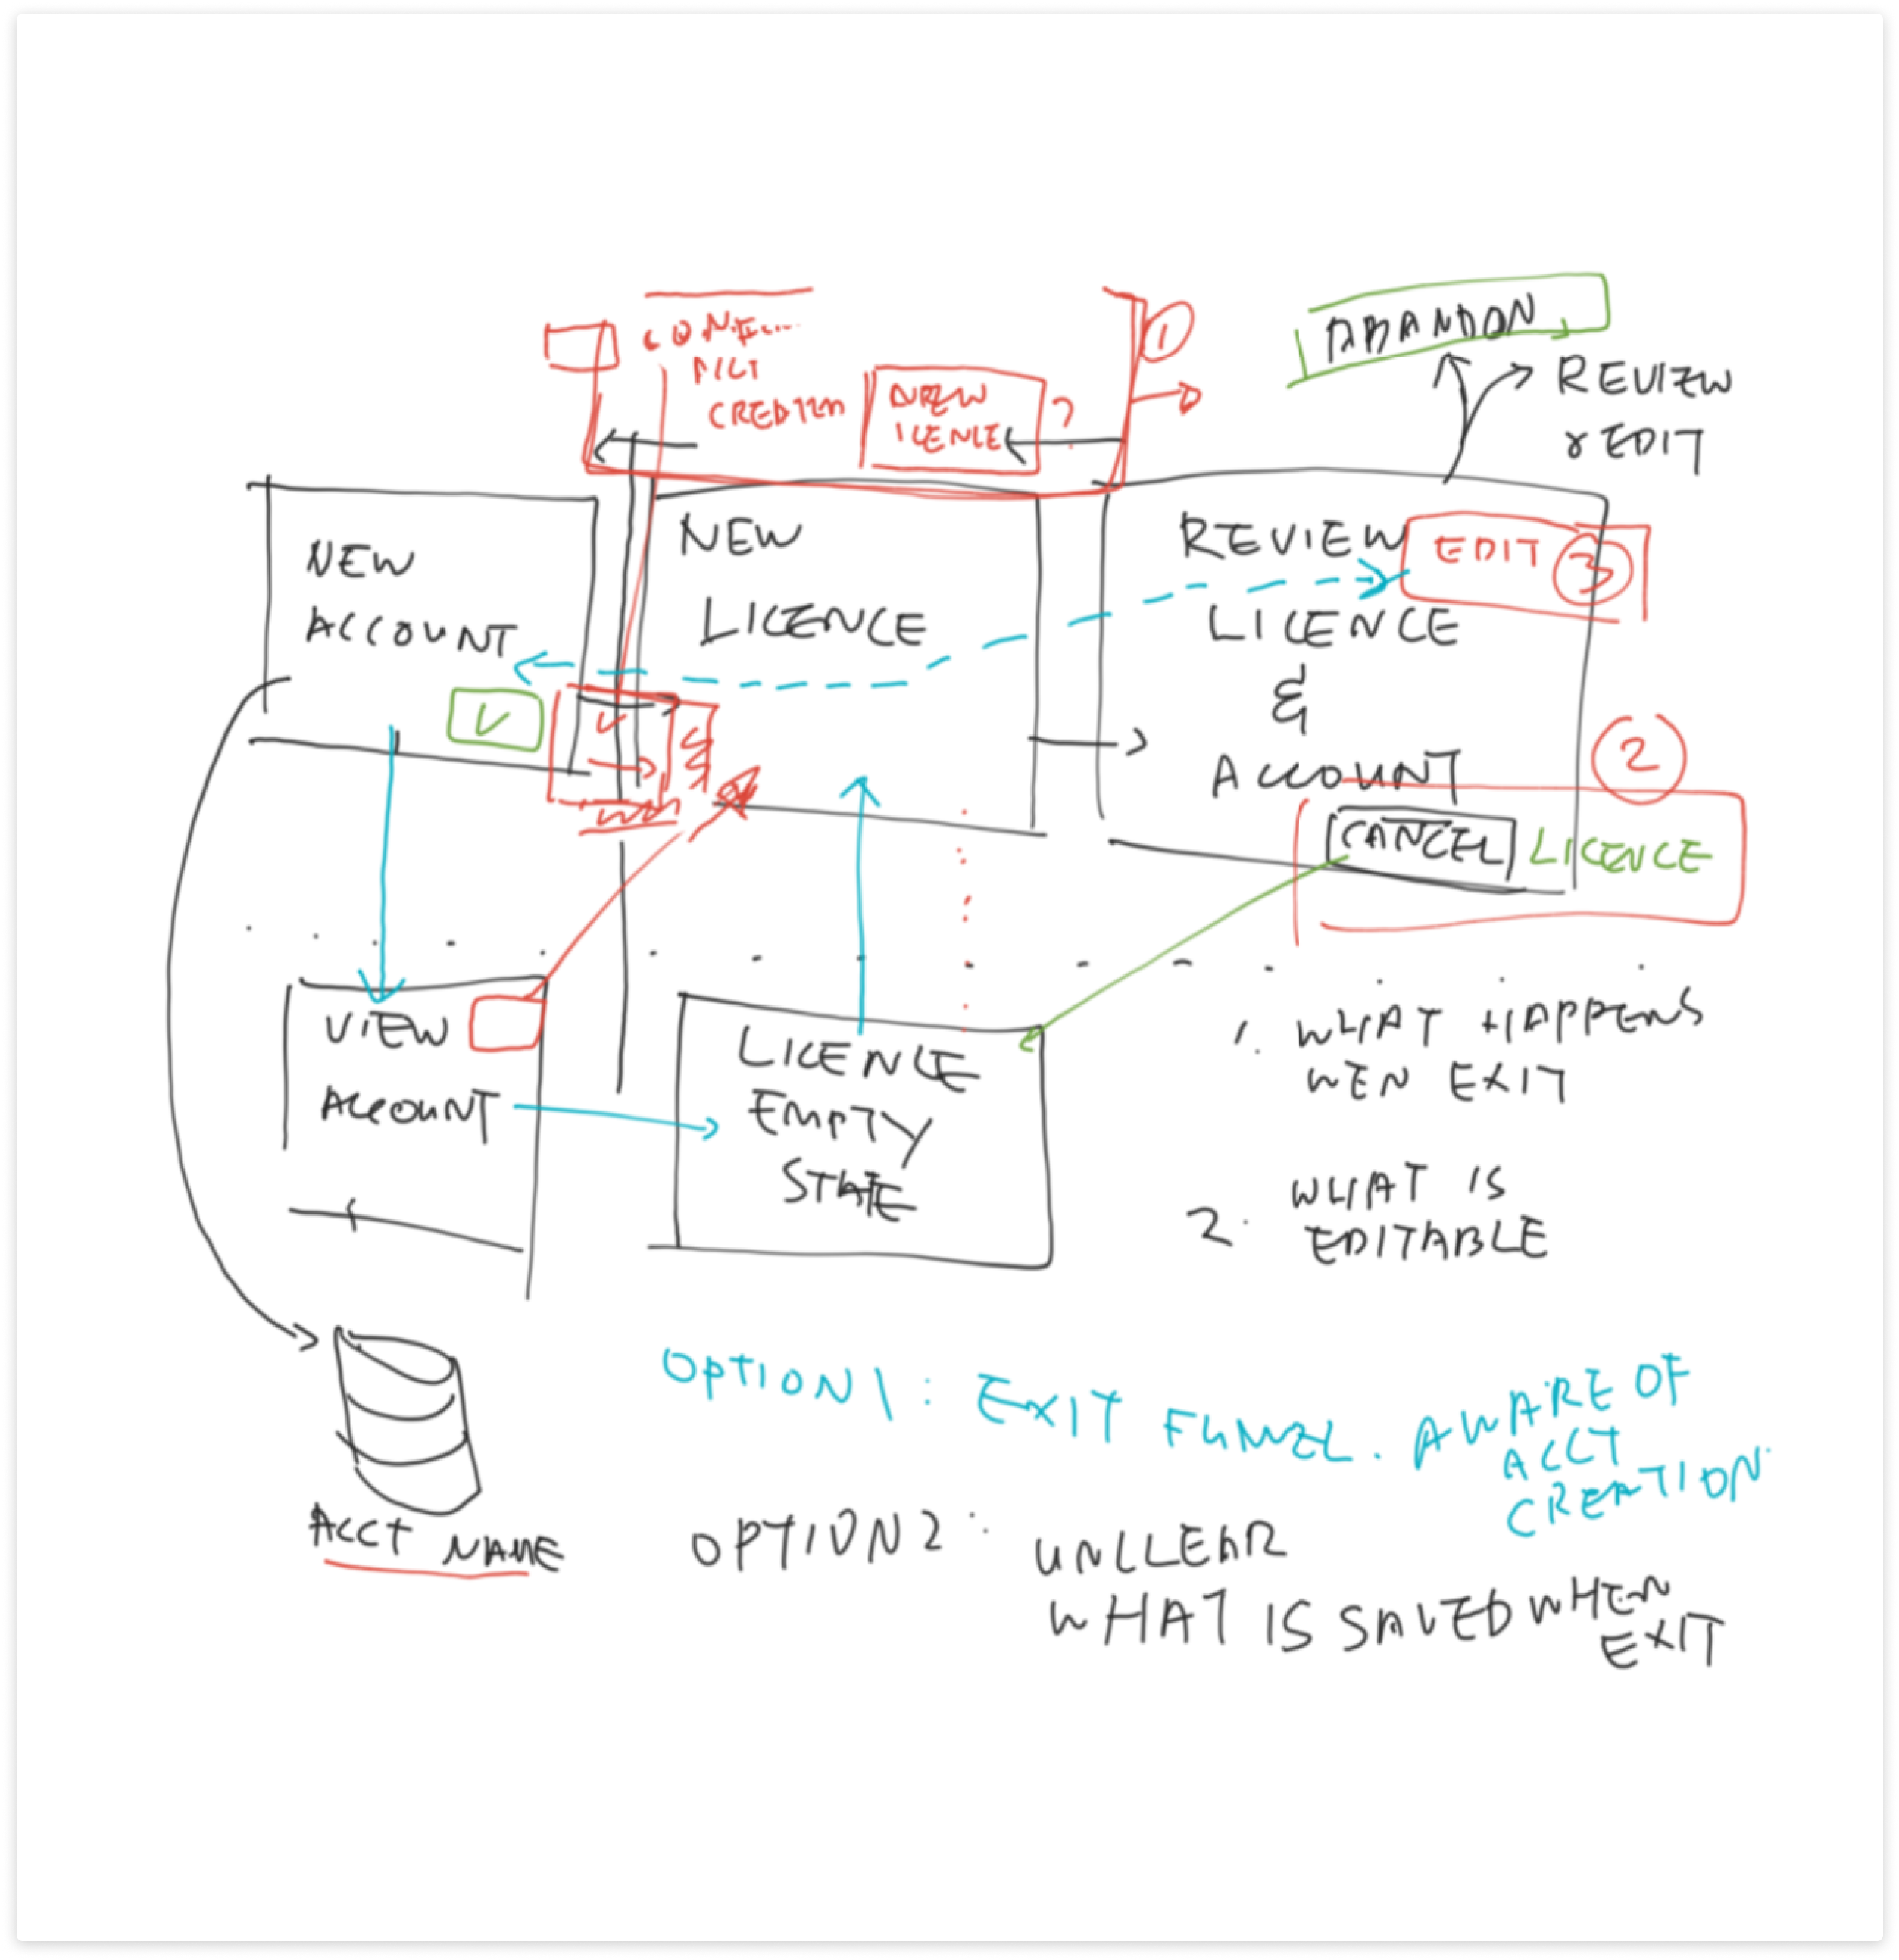 1
ABANDON
REVIEW
& EDIT
ACCT
NEW
?
NEW
ACCOUNT
NEW
LICENCE
REVIEW
LICENCE
&
ACCOUNT
EDIT 3
2
CANCEL LICENCE
VIEW
ACCOUNT
LICENCE
EMPTY
STATE
1. WHAT HAPPENS
WEN EXIT
2. WHAT IS
EDITABLE
ACCT NAME
OPTION 1: EXIT FUNNEL. AWARE OF
ACCT
CREATION.
OPTION 2:
UNCLEAR
WHAT IS SAVED WHEN
EXIT